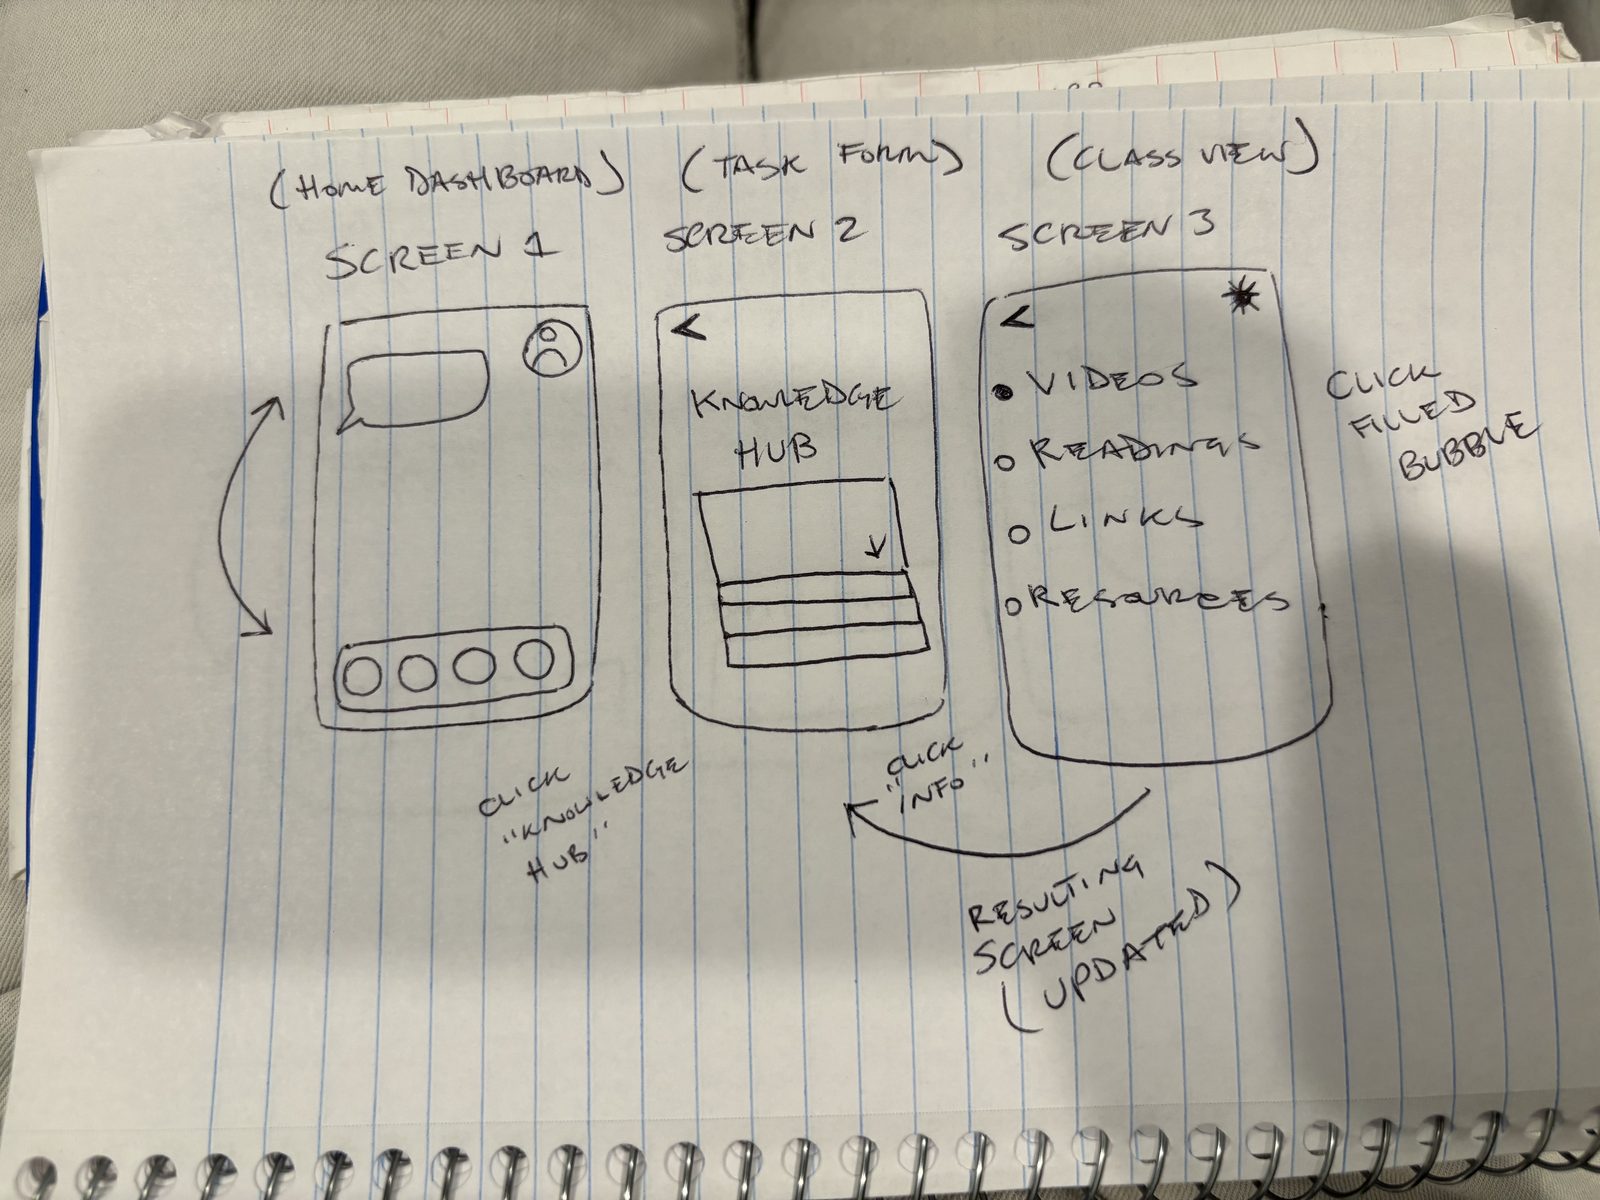 (HOME DASHBOARD)
SCREEN 1
(TASK FORM)
SCREEN 2
(CLASS VIEW)
SCREEN 3
<
KNOWLEDGE
HUB
<
VIDEOS
READINGS
LINKS
RESOURCES
CLICK
FILLED
BUBBLE
CLICK
"KNOWLEDGE
HUB"
CLICK
"INFO"
RESULTING
SCREEN
(UPDATED)